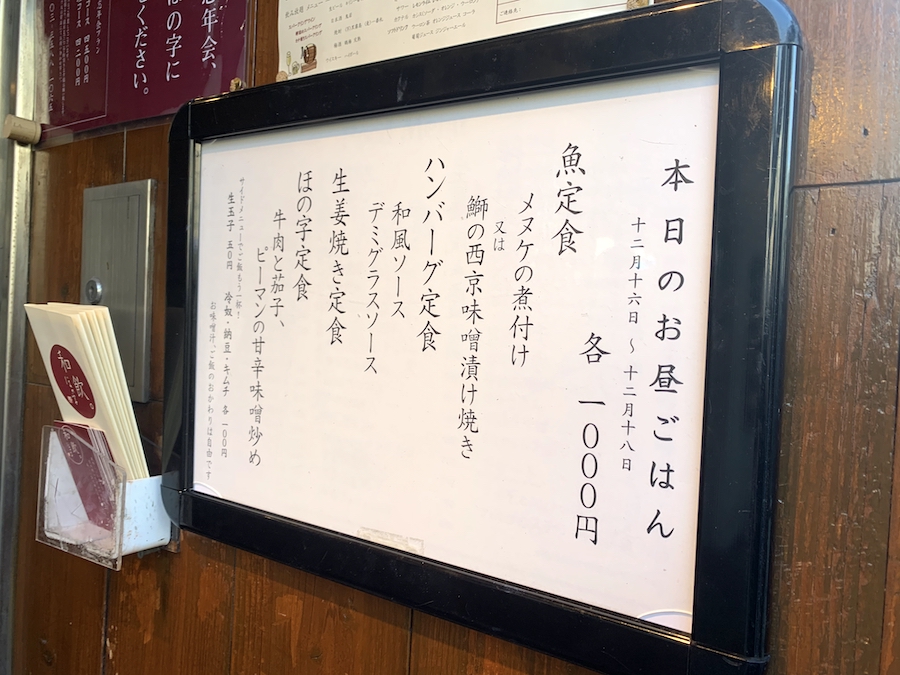 本日のお昼ごはん
十二月十六日〜十二月十八日
各 一000円
魚定食
メヌケの煮付け
又は
鰤の西京味噌漬け焼き
ハンバーグ定食
和風ソース
デミグラスソース
生姜焼き定食
ほの字定食
牛肉と茄子、
ピーマンの甘辛味噌炒め
サイドメニューでご飯もう一杯！
生玉子 五0円 冷奴・納豆・キムチ 各 一00円
お味噌汁、ご飯のおかわりは自由です
忘年会、
ほの字に
ください。
コース 四五00円
コース 四二00円
和飲